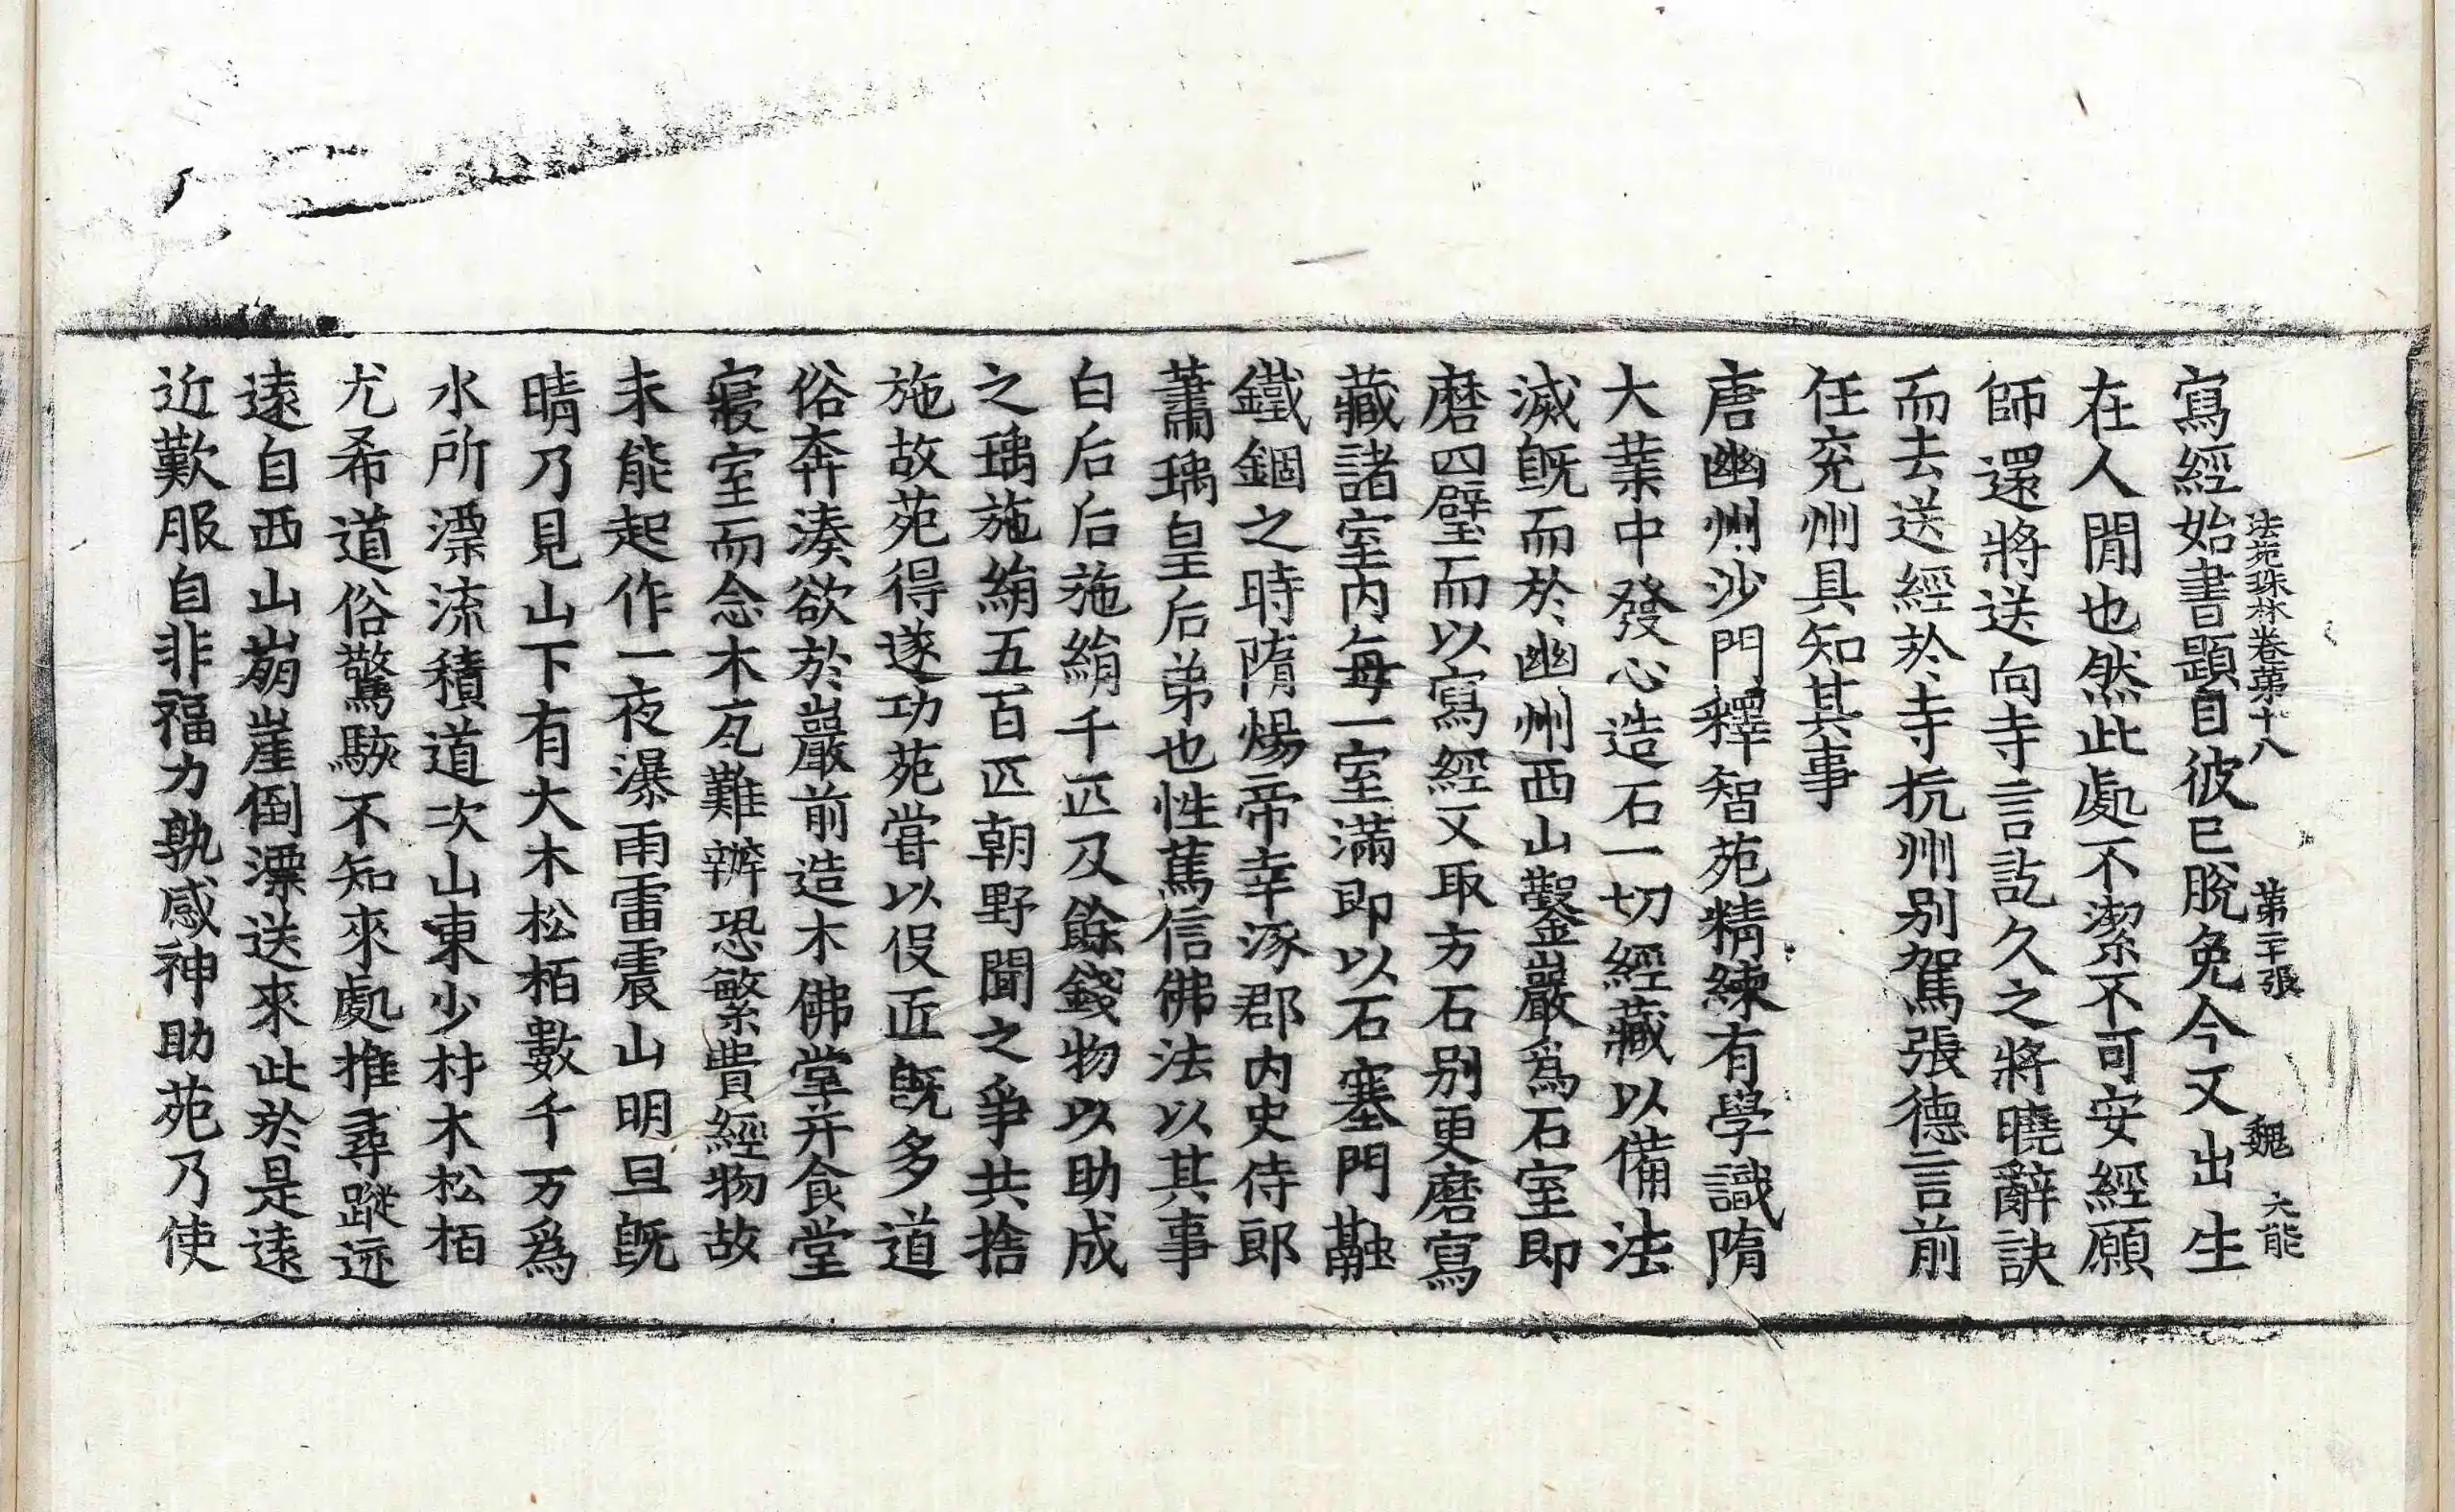 法苑珠林卷第十八 第二十張 魏 大能
寫經始書題自彼已脫免今又出生
在人閒也然此處不潔不可安經願
師還將送向寺言訖久之將曉辭訣
而去送經於寺杭州别駕張德言前
任兖州具知其事
唐幽州沙門釋智苑精練有學識隋
大業中發心造石一切經藏以備法
滅旣而於幽州西山鑿巖爲石室即
磨四壁而以寫經又取方石别更磨寫
藏諸室內每一室滿即以石塞門融
鐵錮之時隋煬帝幸涿郡内史侍郎
蕭瑀皇后弟也性篤信佛法以其事
白后后施絹千匹及餘錢物以助成
之瑀施絹五百匹朝野聞之爭共捨
施故苑得遂功苑甞以役匠旣多道
俗奔湊欲於巖前造木佛堂并食堂
寢室而念木瓦難辦恐繁費經物故
未能起作一夜瀑雨雷震山明旦旣
晴乃見山下有大木松栢數千万爲
水所漂流積道次山東少材木松栢
尤希道俗驚駭不知來處推尋蹤迹
遠自西山崩崖倒漂送來此於是遠
近歎服自非福力孰感神助苑乃使